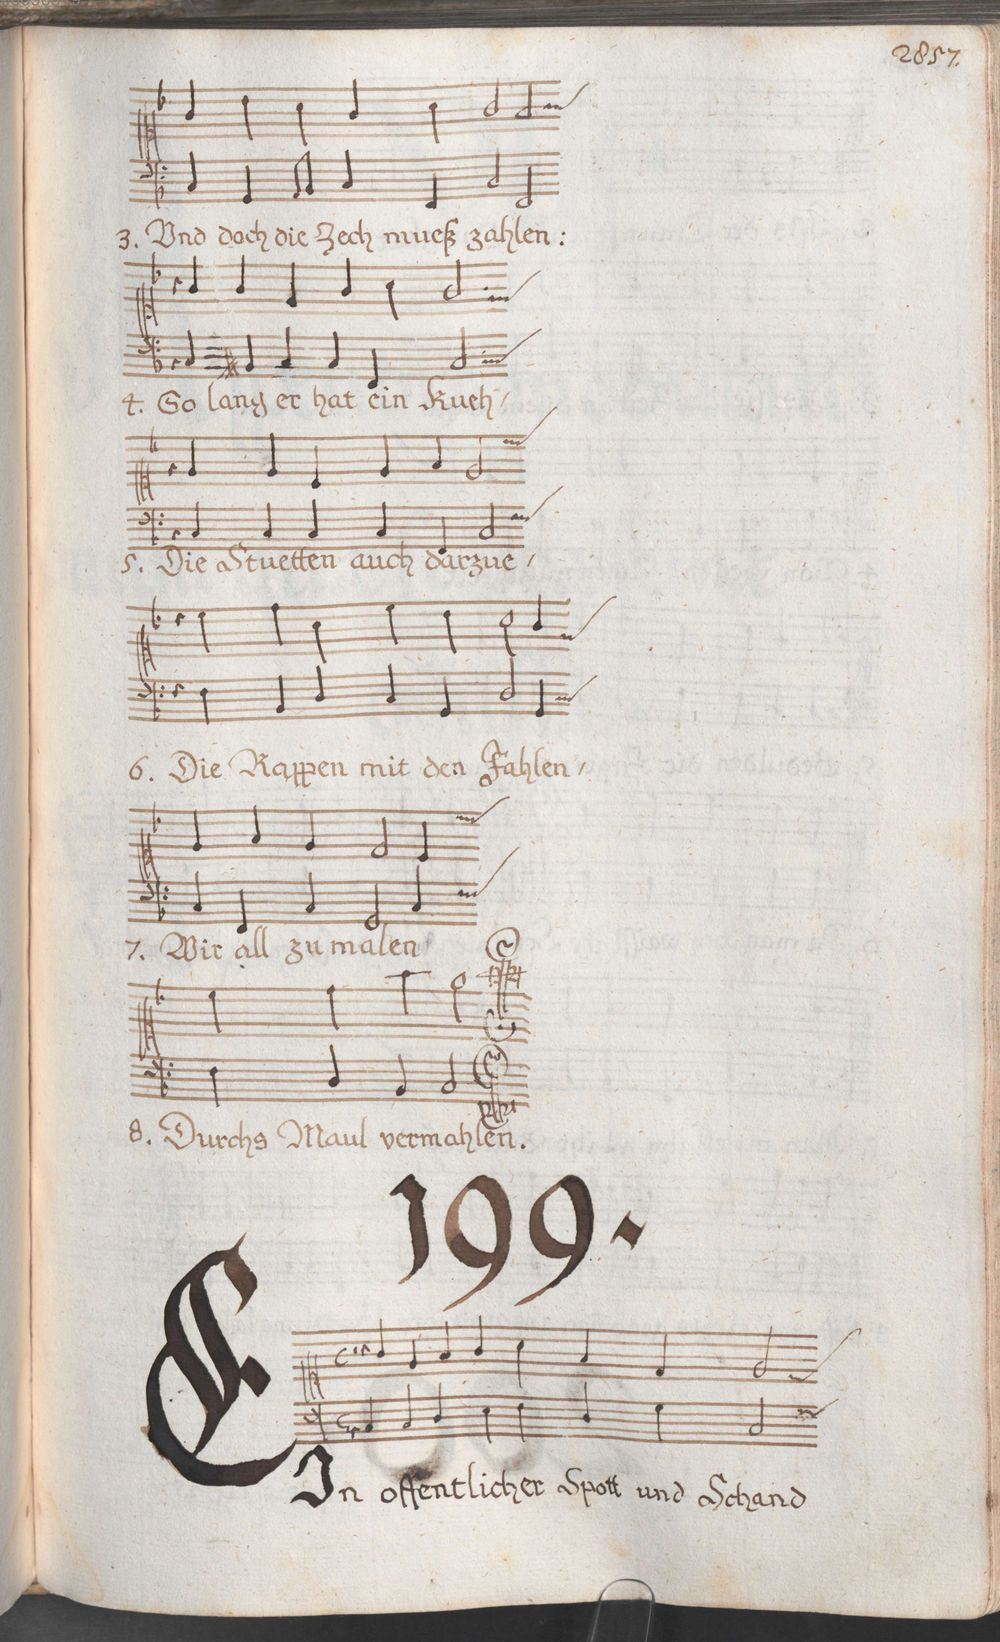 2857.
3. Vnd doch die Zech mueß zahlen:
4. So lang er hat ein Kueh/
5. Die Stuetten auch darzue/
6. Die Rappen mit den Fahlen/
7. Wir all zumalen
8. Durchs Maul vermahlen.
199.
EIn offentlicher Spott und Schand